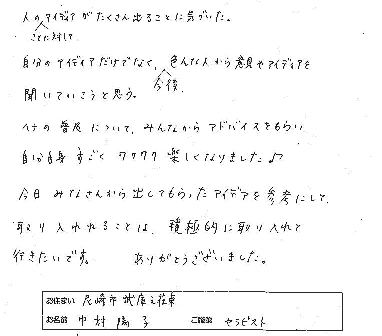 人のアイディアがたくさん出ることに気づいた。
ことに対して
自分のアイディアだけでなく、色んな人から意見やアイディアを
今後
聞いていこうと思う。
ヘナの普及について、みんなからアドバイスをもらい
自分自身すごくワクワク楽しくなりました♪
今日みなさんから出してもらったアイデアを参考にして、
取り入れれることは、積極的に取り入れて
行きたいです。 ありがとうございました。
お住まい 尼崎市武庫之荘東
お名前 中村陽子 ご職業 セラピスト